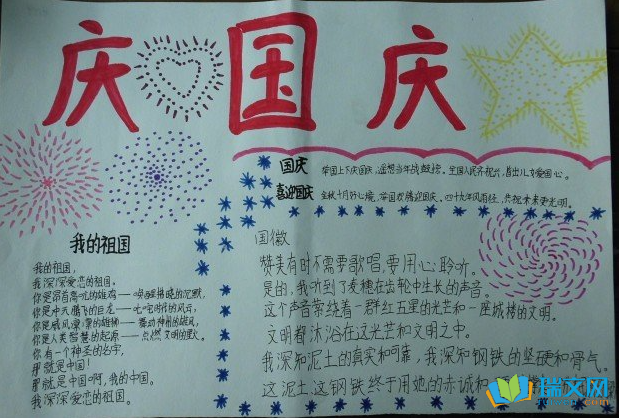 庆国庆
国庆
举国上下庆国庆,遥想当年战鼓擂。全国人民齐祝兴,皆出儿女爱国心。
喜迎国庆
金秋十月好心境,举国欢腾迎国庆。四十九年风雨径,共祝未来更光明。
我的祖国
我的祖国,
我深深爱恋的祖国。
你是昂首高吭的雄鸡——唤醒拂晓的沉默,
你是冲天腾飞的巨龙——叱咤时代的风云,
你是威风凛凛的雄狮——舞动神州的雄风,
你是人类智慧的起源——点燃文明的星火。
你有一个神圣的名字,
那就是中国!
那就是中国啊,我的中国。
我深深爱恋的祖国。
国徽
赞美有时不需要歌唱,要用心聆听。
是的,我听到了麦穗在齿轮中生长的声音。
这个声音萦绕着一群红五星的光芒和一座城楼的文明。
文明都沐浴在这光芒和文明之中。
我深知泥土的真实和可靠,我深知钢铁的坚硬和骨气。
这泥土这钢铁终于用她的赤诚和
瑞文网